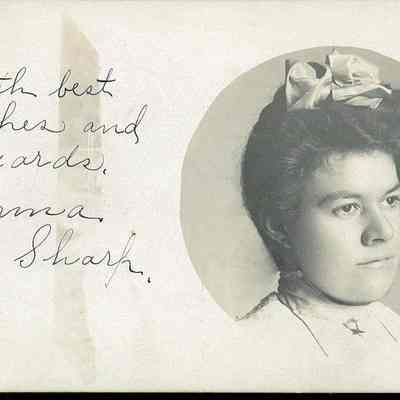 th best
hes and
ards.
ma
Sharp.